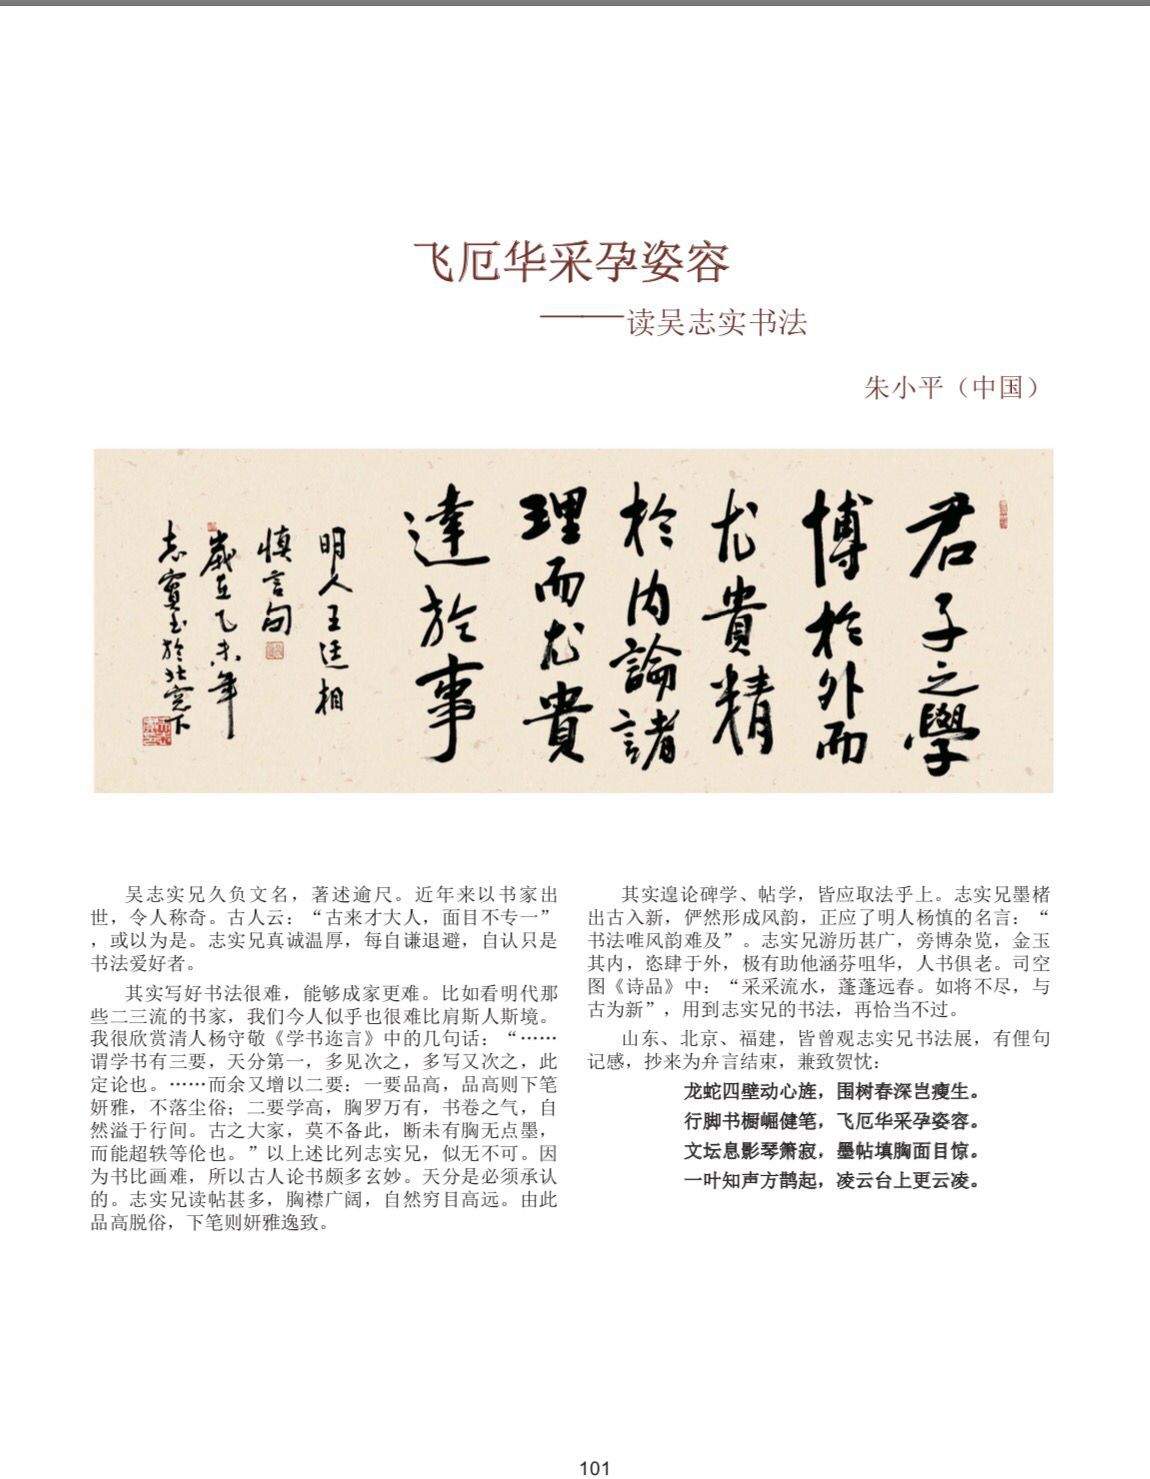 飞厄华采孕姿容
——读吴志实书法
朱小平（中国）
君子之學
博於外而
尤貴精
於内論諸
理而尤貴
達於事
明人王廷相
慎言句
歲在乙未年
志實书於北窓下
吴志实兄久负文名，著述逾尺。近年来以书家出
世，令人称奇。古人云：“古来才大人，面目不专一”
，或以为是。志实兄真诚温厚，每自谦退避，自认只是
书法爱好者。
其实写好书法很难，能够成家更难。比如看明代那
些二三流的书家，我们今人似乎也很难比肩斯人斯境。
我很欣赏清人杨守敬《学书迩言》中的几句话：“……
谓学书有三要，天分第一，多见次之，多写又次之，此
定论也。……而余又增以二要：一要品高，品高则下笔
妍雅，不落尘俗；二要学高，胸罗万有，书卷之气，自
然溢于行间。古之大家，莫不备此，断未有胸无点墨，
而能超轶等伦也。”以上述比列志实兄，似无不可。因
为书比画难，所以古人论书颇多玄妙。天分是必须承认
的。志实兄读帖甚多，胸襟广阔，自然穷目高远。由此
品高脱俗，下笔则妍雅逸致。
其实遑论碑学、帖学，皆应取法乎上。志实兄墨楮
出古入新，俨然形成风韵，正应了明人杨慎的名言：“
书法唯风韵难及”。志实兄游历甚广，旁博杂览，金玉
其内，恣肆于外，极有助他涵芬咀华，人书俱老。司空
图《诗品》中：“采采流水，蓬蓬远春。如将不尽，与
古为新”，用到志实兄的书法，再恰当不过。
山东、北京、福建，皆曾观志实兄书法展，有俚句
记感，抄来为弁言结束，兼致贺忱：
龙蛇四壁动心旌，围树春深岂瘦生。
行脚书橱崛健笔，飞厄华采孕姿容。
文坛息影琴箫寂，墨帖填胸面目惊。
一叶知声方鹊起，凌云台上更云凌。
101